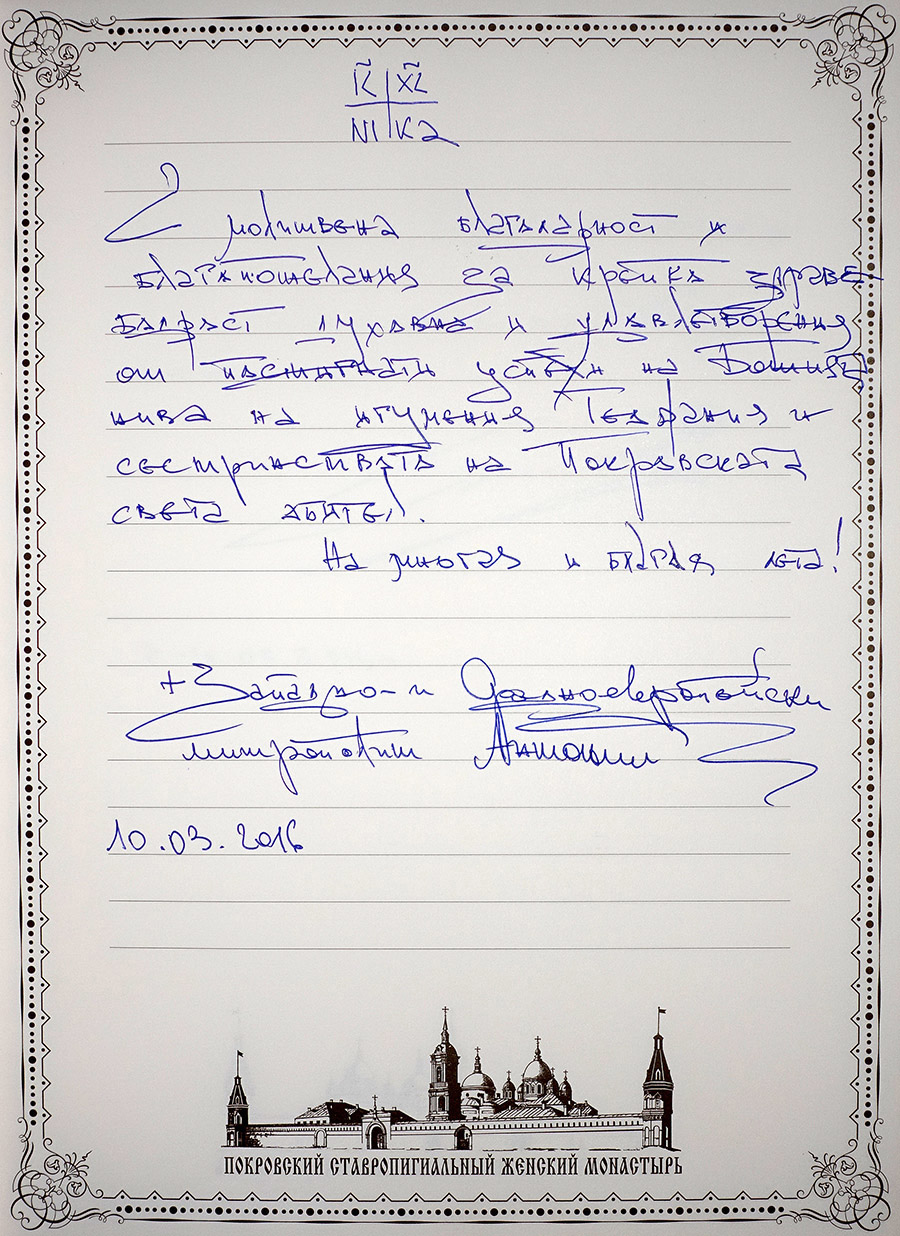 ІС ХС
NI KA
С молитвена благодарност и
благопожелания за крепко здраве
бодрост духовна и удовлетворения
от постигнати успехи на Божията
нива на игумения Феофания и
сестринството на Покровската
света обител.
На многая и благая лета!
+ Западно- и Средноевропейски
митрополит Антоний
10.03.2016
ПОКРОВСКИЙ СТАВРОПИГИАЛЬНЫЙ ЖЕНСКИЙ МОНАСТЫРЬ